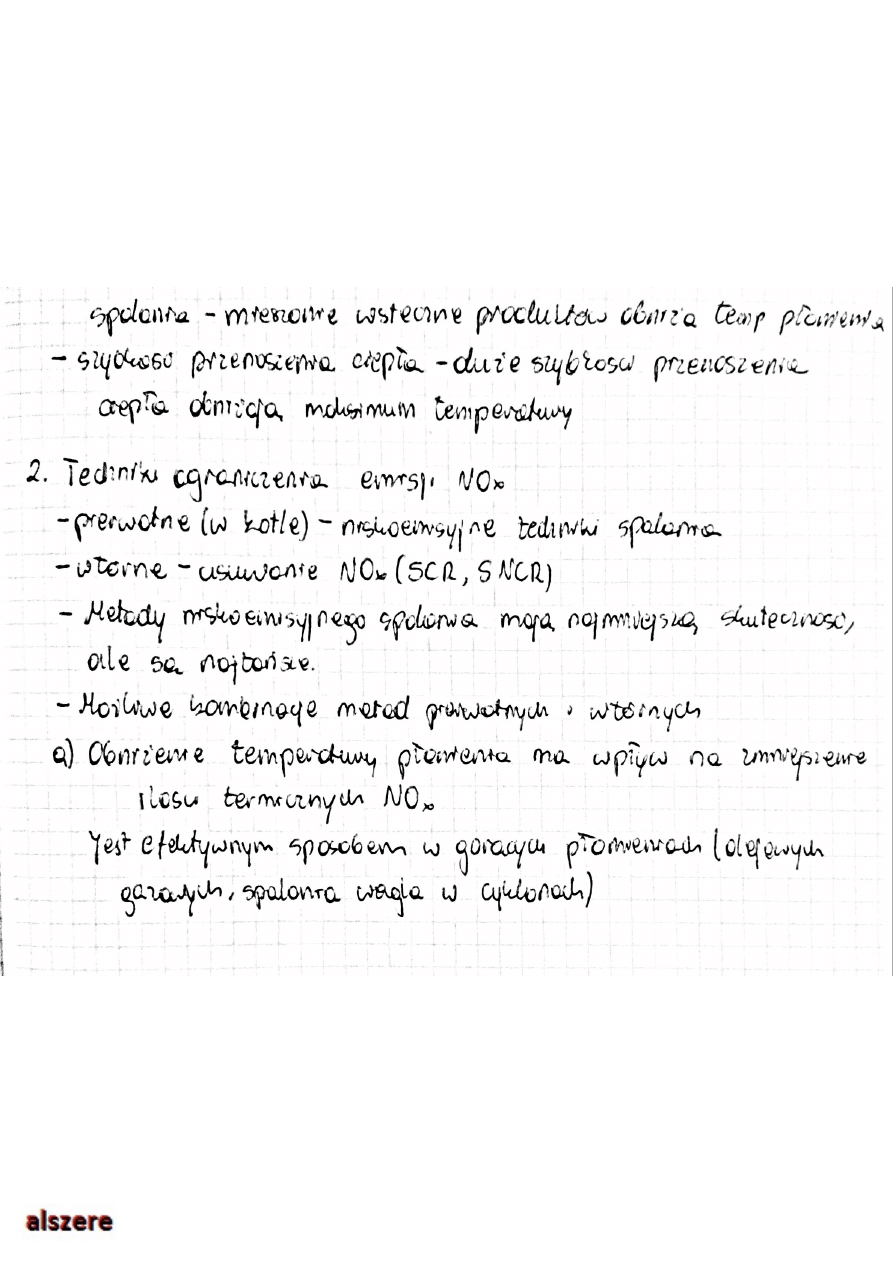 spalania - mieszanie wsteczne produktów obniża temp płomienia
- szybkość przenoszenia ciepła - duże szybkości przenoszenia
ciepła obniżają maksimum temperatury
2. Techniki ograniczenia emisji NOx
- pierwotne (w kotle) - niskoemisyjne techniki spalania
- wtórne - usuwanie NOx (SCR, SNCR)
- Metody niskoemisyjnego spalania mają najmniejszą skuteczność,
ale są najtańsze.
- Możliwe kombinacje metod pierwotnych i wtórnych
a) Obniżenie temperatury płomienia ma wpływ na zmniejszenie
ilości termicznych NOx
Jest efektywnym sposobem w gorących płomieniach (olejowych
gazowych, spalania węgla w cyklonach)
alszere